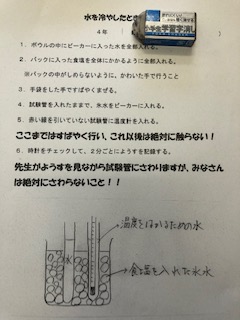 水を冷やしたと
4年
1．ボウルの中にビーカーに入った水を全部入れる。
2．パックに入った食塩を全体にかかるように全部入れる。
※パックの中がしめらないように、かわいた手で行うこと
3．手袋をした手ですばやくまぜる。
4．試験管を入れたままで、氷水をビーカーに入れる。
5．赤い線を引いていない試験管に温度計を入れる。
ここまではすばやく行い、これ以後は絶対に触らない！
6．時計をチェックして、2分ごとにようすを記録する。
先生がようすを見ながら試験管にさわりますが、みなさん
は絶対にさわらないこと！！
温度をはかるための水
水
食塩を入れた氷水